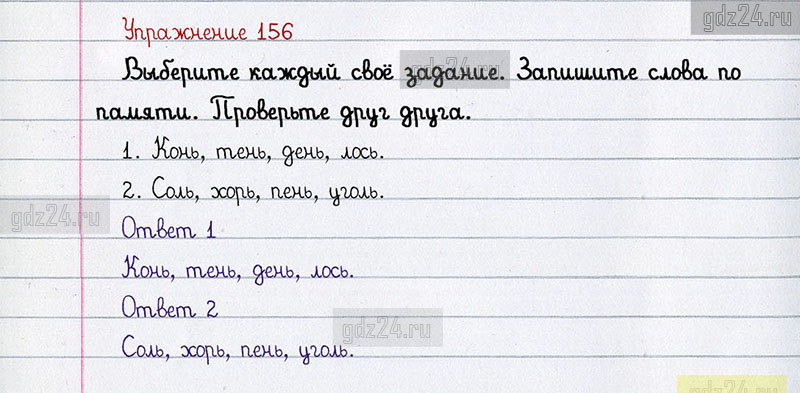 gdz24.ru
Упражнение 156
Выберите каждый своё задание. Запишите слова по
gdz24.ru
памяти. Проверьте друг друга.
1. Конь, тень, день, лось.
2. Соль, хорь, пень, уголь.
gdz24.ru
Ответ 1
Конь, тень, день, лось.
Ответ 2
gdz24.ru
Соль, хорь, пень, уголь.
gdz24.ru